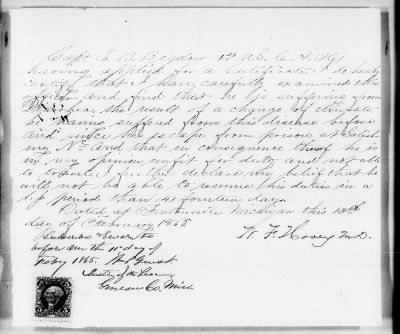 Capt. L. R. Bigelow 12 US. C. A. Hy
having applied for a Certificate I do hereby
certify that I have carefully examined this
officer and find that he is suffering from
Diarrhea the result of a change of climate
he having suffered from this disease before
and since his escape from prison, at Salis-
bury N.C. and that in consequence thereof he is
in my opinion unfit for duty and not able
to travel. I further declare my belief that he
will not be able to resume his duties in a
less period than fourteen days
Dated at Michigan this
day of February 1865
W. F. Hovey M.D.
Subscribed & Sworn to
before me the 11th day of
Feby 1865.
Justice of the Peace
Genesee Co. Mich